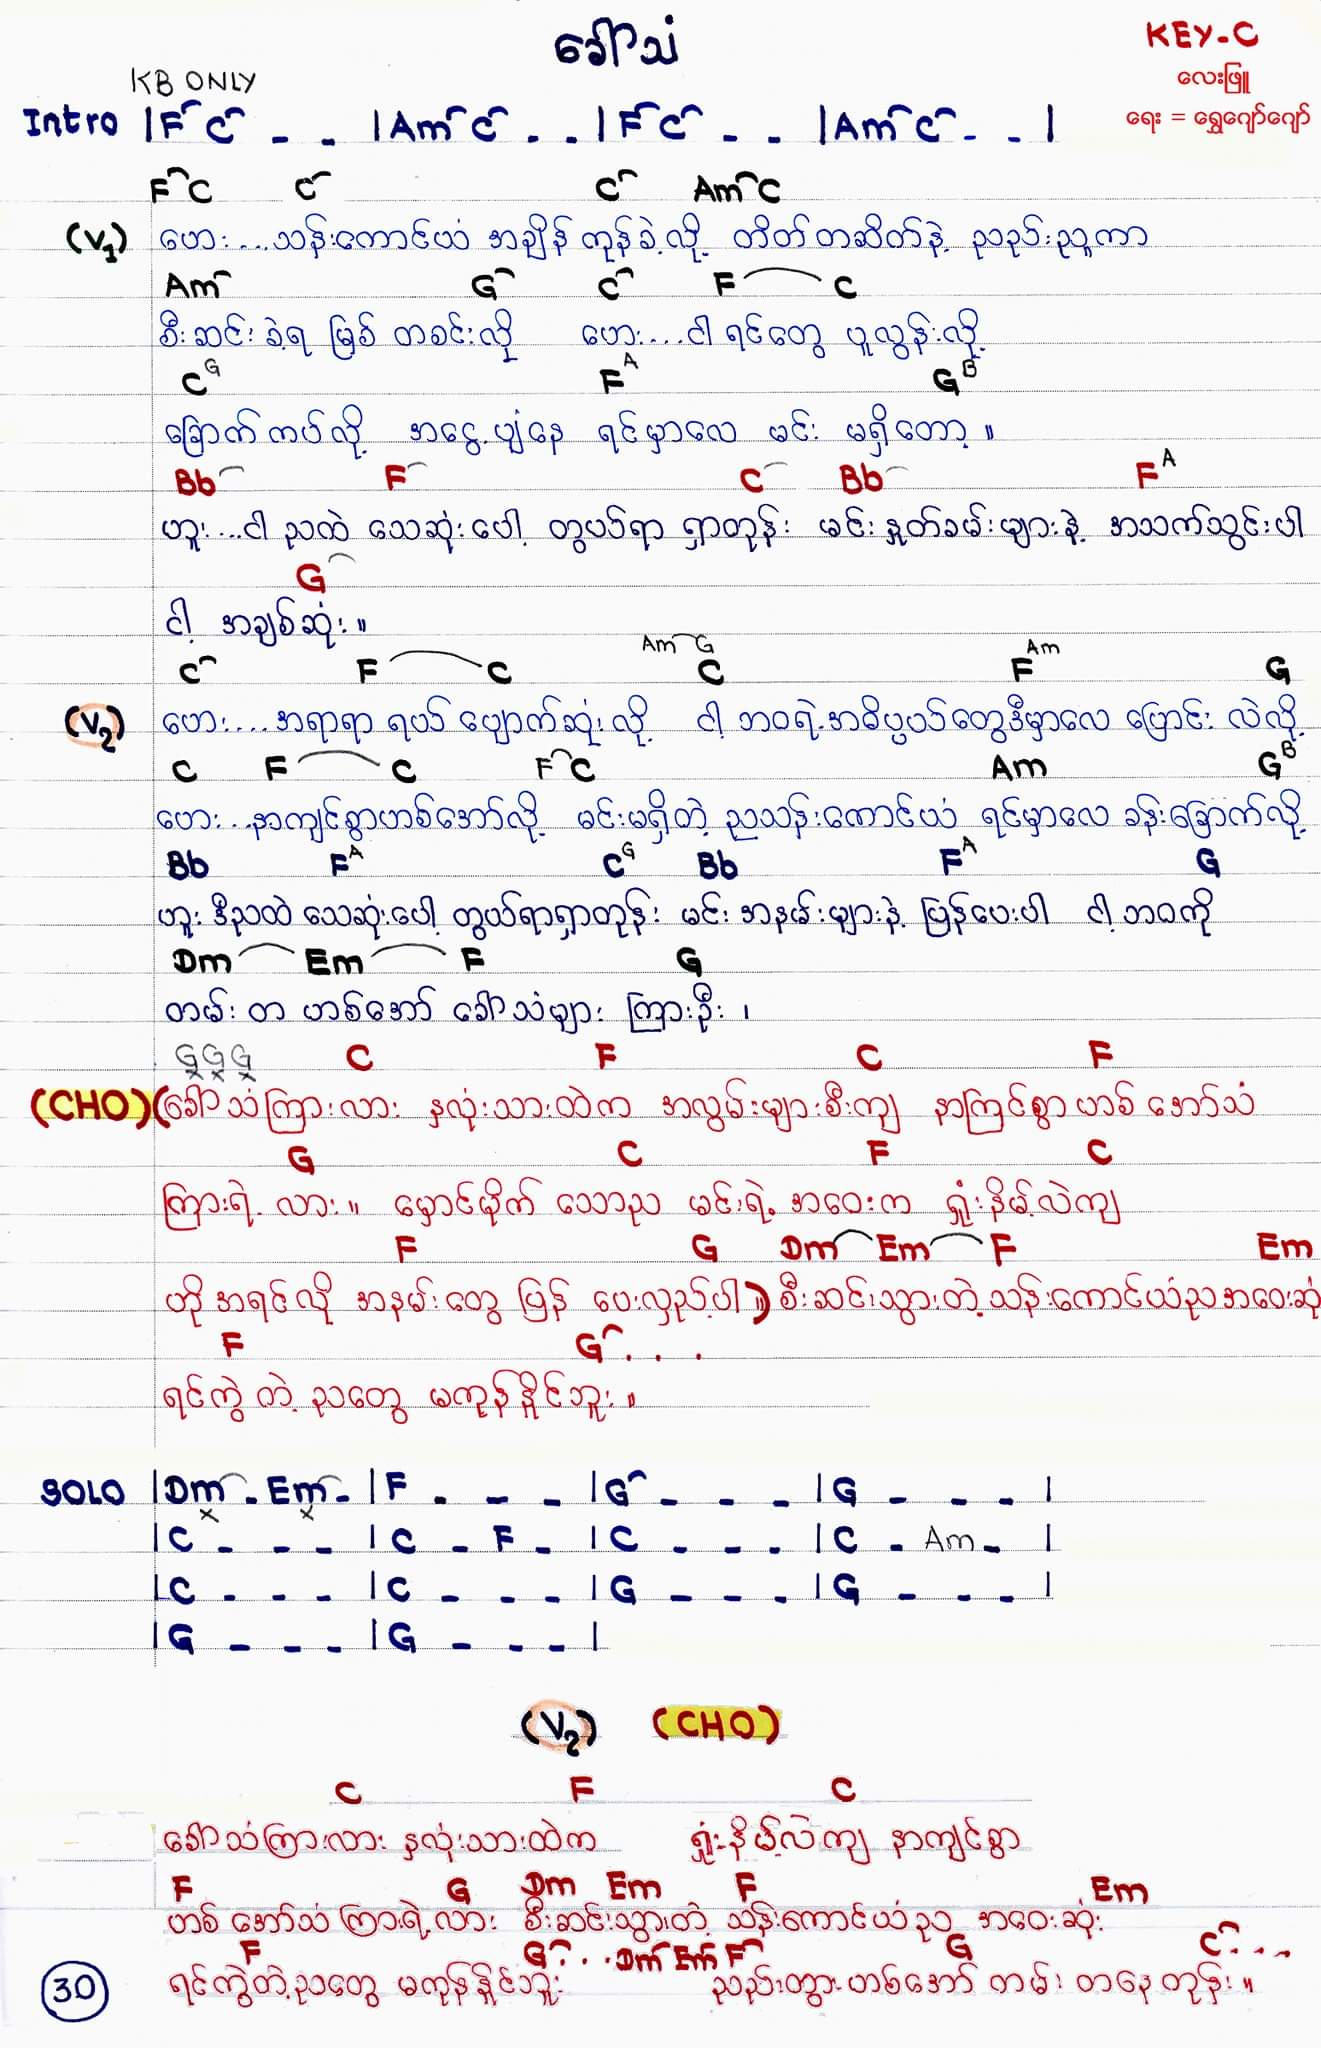 ခေါ်သံ
KEY-C
လေးဖြူ
ရေး = ရွှေဂျော်ဂျော်
KB ONLY
Intro |F C - - |Am C - - |F C - - |Am C - - |
F C C C Am C
(V1) ဟေး....သန်းကောင်ယံ အချိန် ကုန်ခဲ့လို့ တိတ်တဆိတ်နဲ့ ညဉ့်းညူကာ
Am G C F C
စီးဆင်းခဲ့ရ မြစ် တစင်းလို ဟေး....ငါ ရင်တွေ ပူလွန်းလို့
C G F A G B
ခြောက်ကပ်လို့ အငွေ့ပျံနေ ရင်မှာလေ မင်း မရှိတော့ ။
Bb F C Bb F A
ဟူး...ငါ ညကဲ သေဆုံးပေါ့ တွယ်ရာ ရှာတုန်း မင်းနှုတ်ခမ်းများနဲ့ အသက်သွင်းပါ
G
ငါ့ အချစ်ဆုံး ။
Am G Am
C F C C F G
(V2) ဟေး....အရာရာ ရယ် ပျောက်ဆုံးလို့ ငါ့ ဘဝရဲ့အဓိပ္ပယ်တွေဒီမှာလေ ပြောင်း လဲလို့
C F C F C Am G B
ဟေး...နာကျင်စွာဟစ်အော်လို့ မင်းမရှိတဲ့ ညသန်းကောင်ယံ ရင်မှာလေ ခန်းခြောက်လို့
Bb F A C G Bb F A G
ဟူး ဒီညထဲ သေဆုံးပေါ့ တွယ်ရာရှာတုန်း မင်း အနမ်းများနဲ့ ပြန်ပေးပါ ငါ့ ဘဝကို
Dm Em F G
တမ်း တ ဟစ်အော် ခေါ်သံများ ကြားဦး ၊
G G G C F C F
(CHO) (ခေါ်သံကြားလား နှလုံးသားထဲက အလွမ်းများစီးကျ နာကြင်စွာ ဟစ် အော်သံ
G C F C
ကြားရဲ့ လား ။ မှောင်မိုက် သောည မင်းရဲ့ အဝေးက ရှုံးနိမ့်လဲကျ
F G Dm Em F Em
ဟို အရင်လို အနမ်းတွေ ပြန် ပေးလှည့်ပါ ။) စီးဆင်းသွားတဲ့ သန်းကောင်ယံညအဝေးဆုံး
F G . . .
ရင်ကွဲ တဲ့ ညတွေ မကုန်နိုင်ဘူး ။
SOLO |Dm - Em - |F - - - |G - - - |G - - - |
x x
|C - - - |C - F - |C - - - |C - Am - |
|C - - - |C - - - |G - - - |G - - - |
|G - - - |G - - - |
(V2) (CHO)
C F C
ခေါ်သံကြားလား နှလုံးသားထဲက ရှုံးနိမ့်လဲကျ နာကျင်စွာ
F G Dm Em F Em
ဟစ် အော်သံ ကြားရဲ့လား စီးဆင်းသွားတဲ့ သန်းကောင်ယံည အဝေးဆုံး
F G . . . Dm Em F G C . . .
ရင်ကွဲတဲ့ညတွေ မကုန်နိုင်ဘူး ညည်းတွား ဟစ်အော် တမ်း တနေတုန်း ။
30